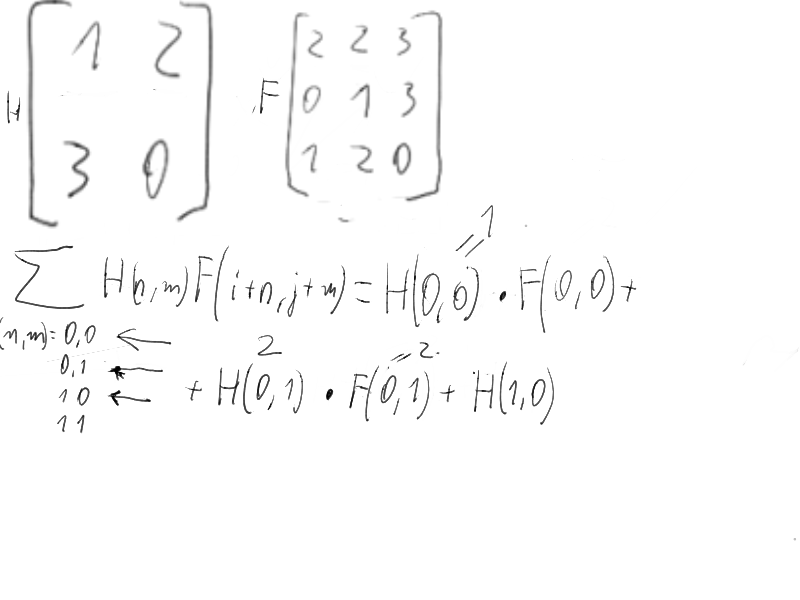 H [1 2
3 0]
F [2 2 3
0 1 3
1 2 0]
=1
∑ H(n,m)F(i+n,j+m) = H(0,0) · F(0,0) +
(n,m)=0,0 ←
0,1 ←
1 0 ←
1 1
2 =2.
+ H(0,1) · F(0,1) + H(1,0)